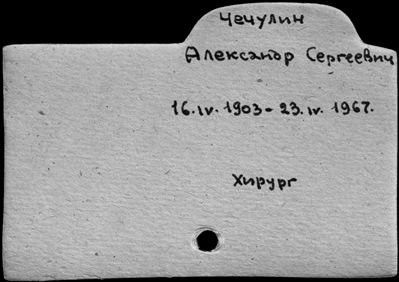 Чечулин
Александр Сергеевич
16.IV.1903 - 23.IV.1967.
Хирург